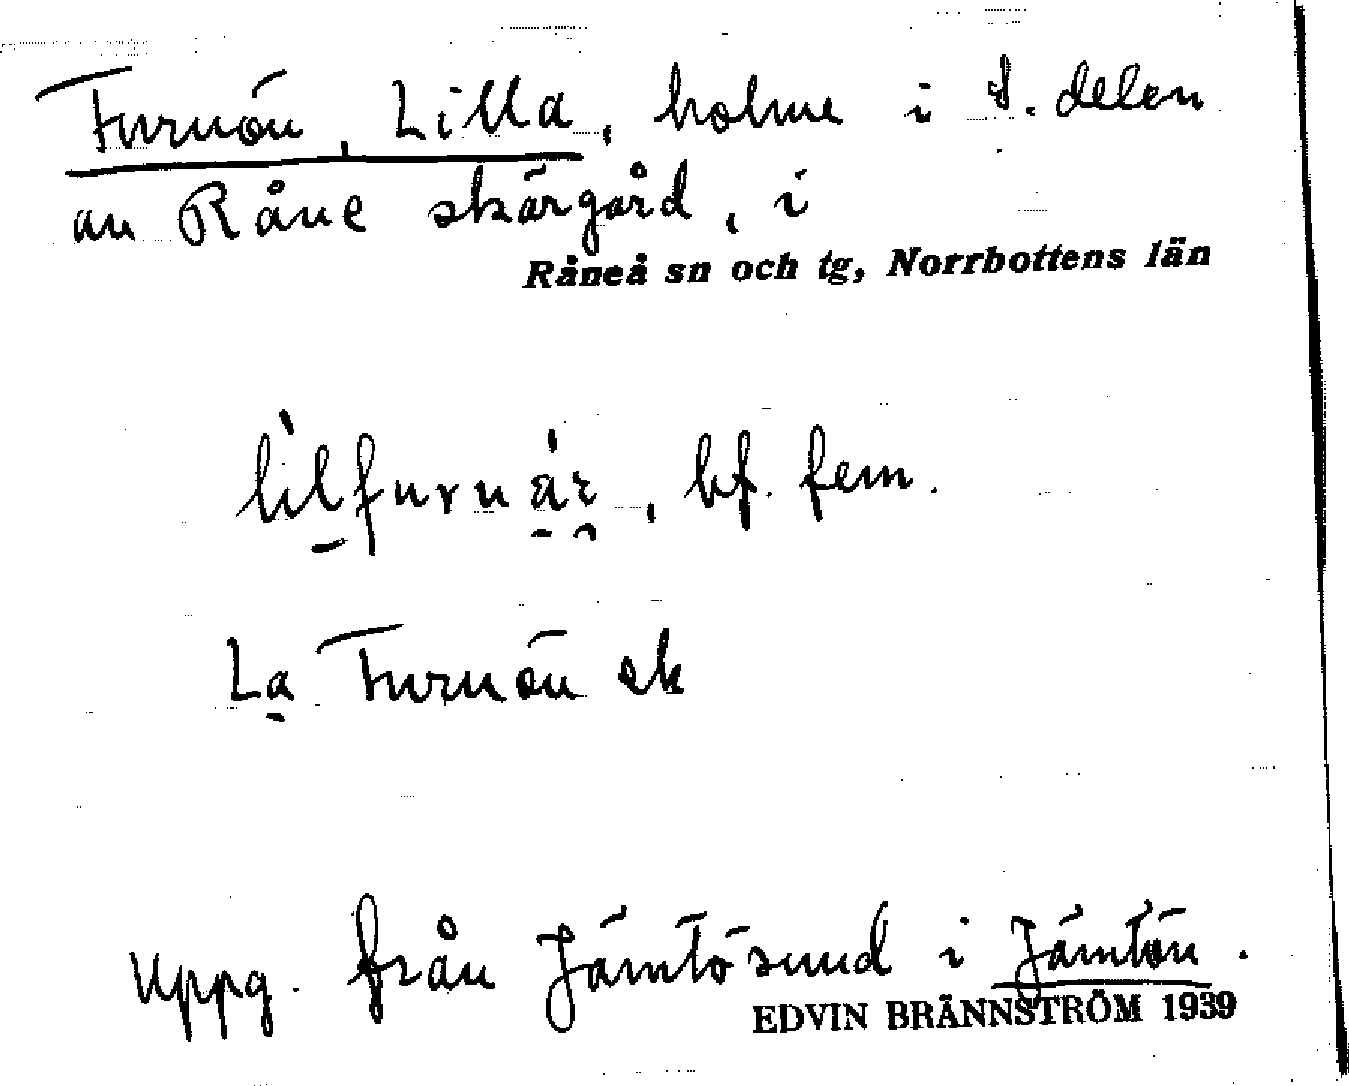 Furuön, Lilla, holme i S. delen
av Råne skärgård, i
Råneå sn och tg, Norrbottens län
lìlfuruá̱r̯, bf. fem.
La̱ Furuön ek
Uppg. från Jämtösund i Jämtön.
EDVIN BRÄNNSTRÖM 1939